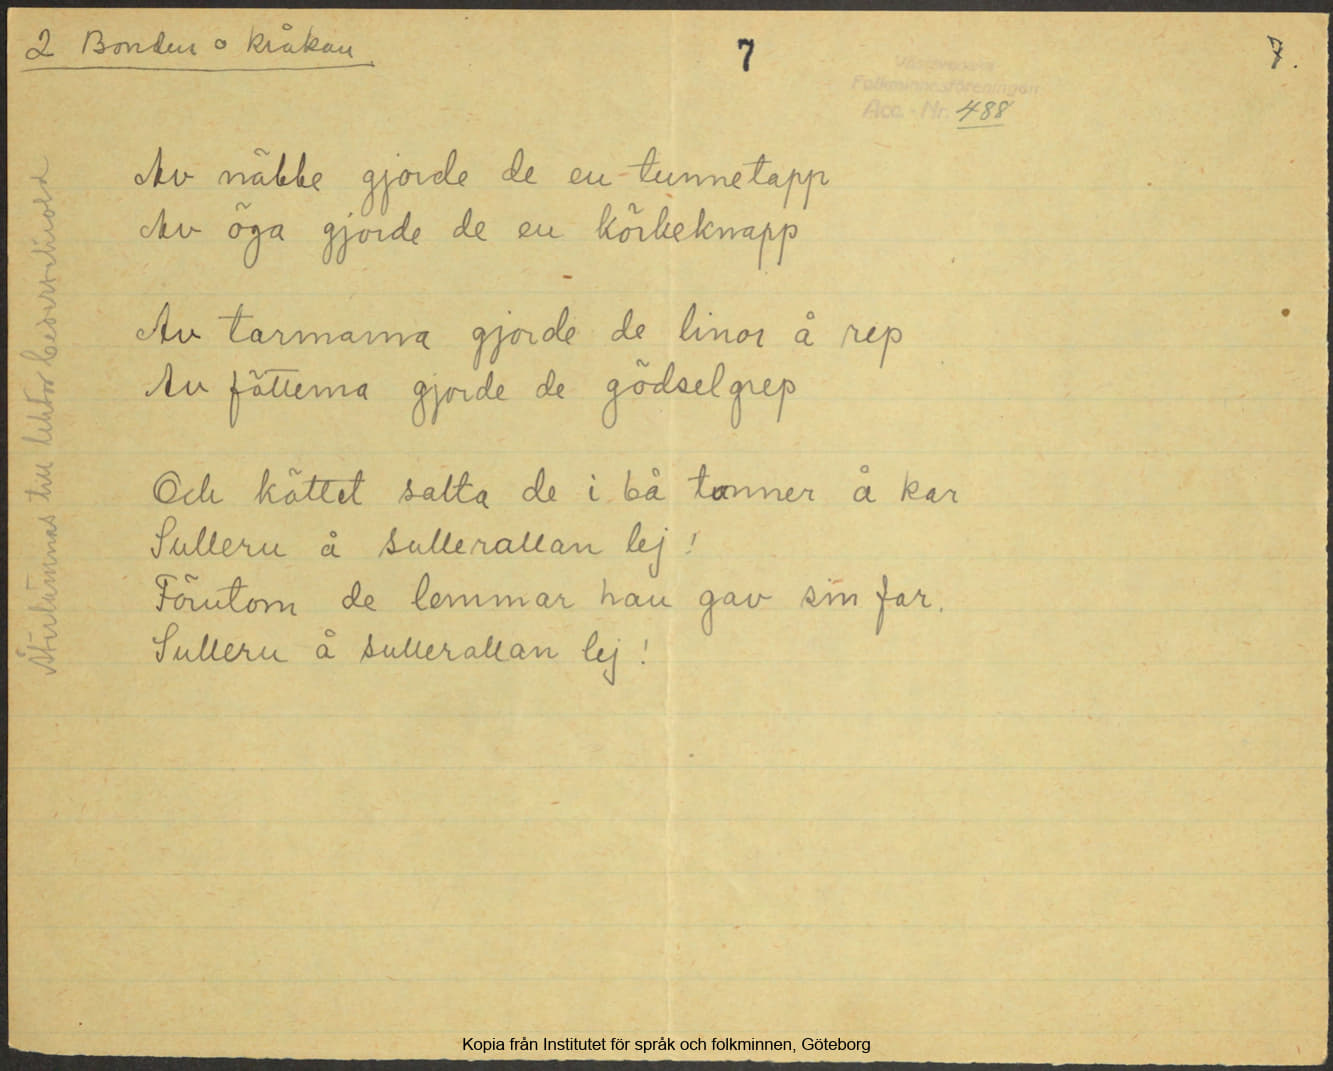 2 Bonden o kråkan
7
7.
Västsvenska
Folkminnesföreningen
Acc. - Nr. 488
Av näbbe gjorde de en tunnetapp
Av öga gjorde de en körkeknapp
Av tarmarna gjorde de linor å rep
Av fötterna gjorde de gödselgrep
Och köttet salta de i bå tonner å kar
Sulleru å sullerallan lej!
Förutom de lemmar han gav sin far.
Sulleru å sullerallan lej!
Återlämnas till lektor
Kopia från Institutet för språk och folkminnen, Göteborg